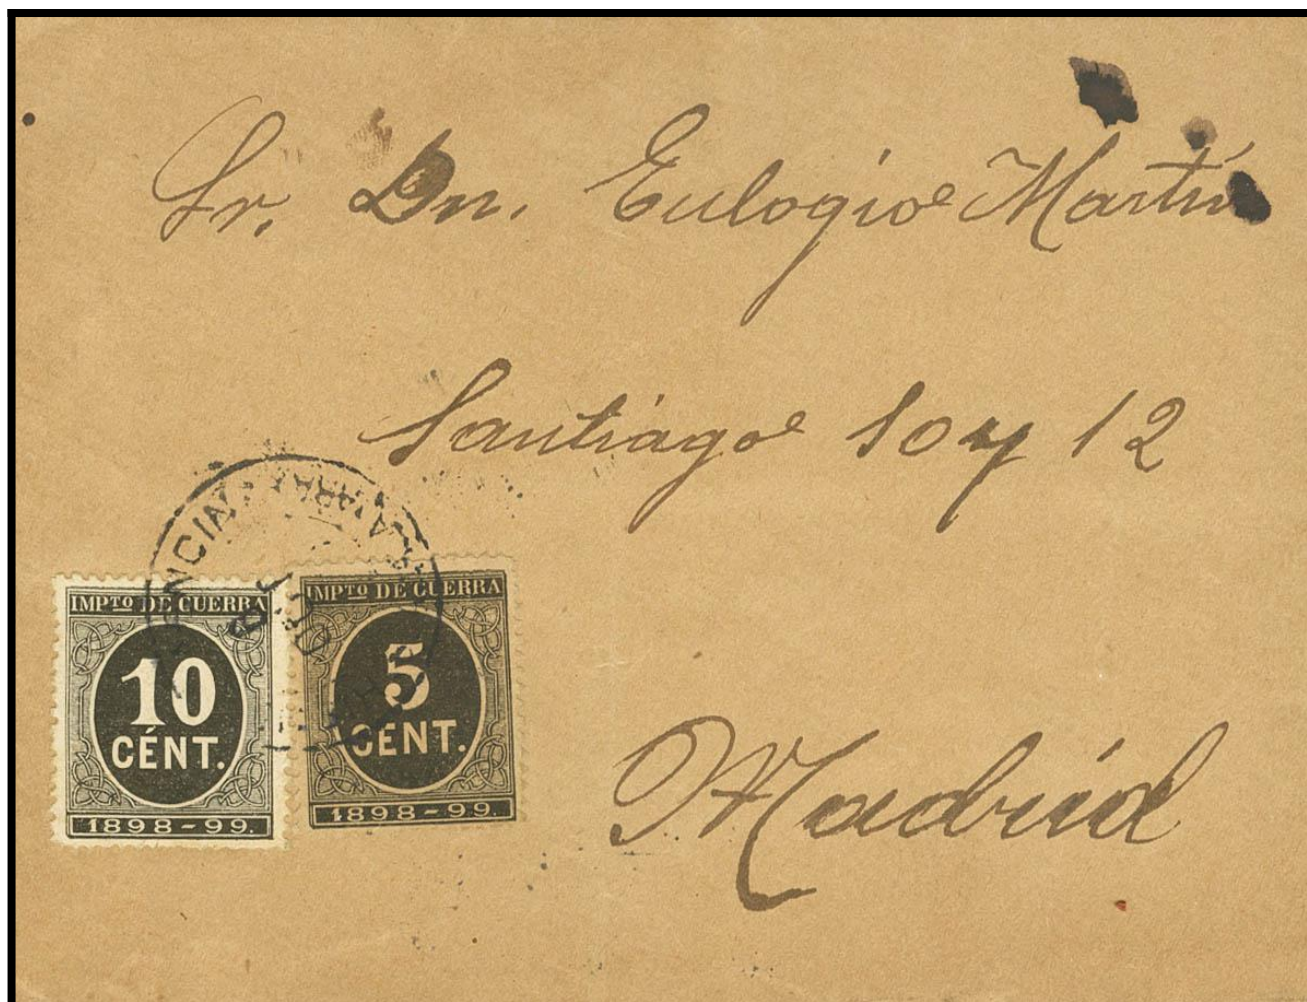 Sr. Dn. Eulogio Martín
Santiago 10 y 12
Madrid
IMPTO DE GUERRA
10
CÉNT.
1898-99.
IMPTO DE GUERRA
5
CENT.
1898-99.